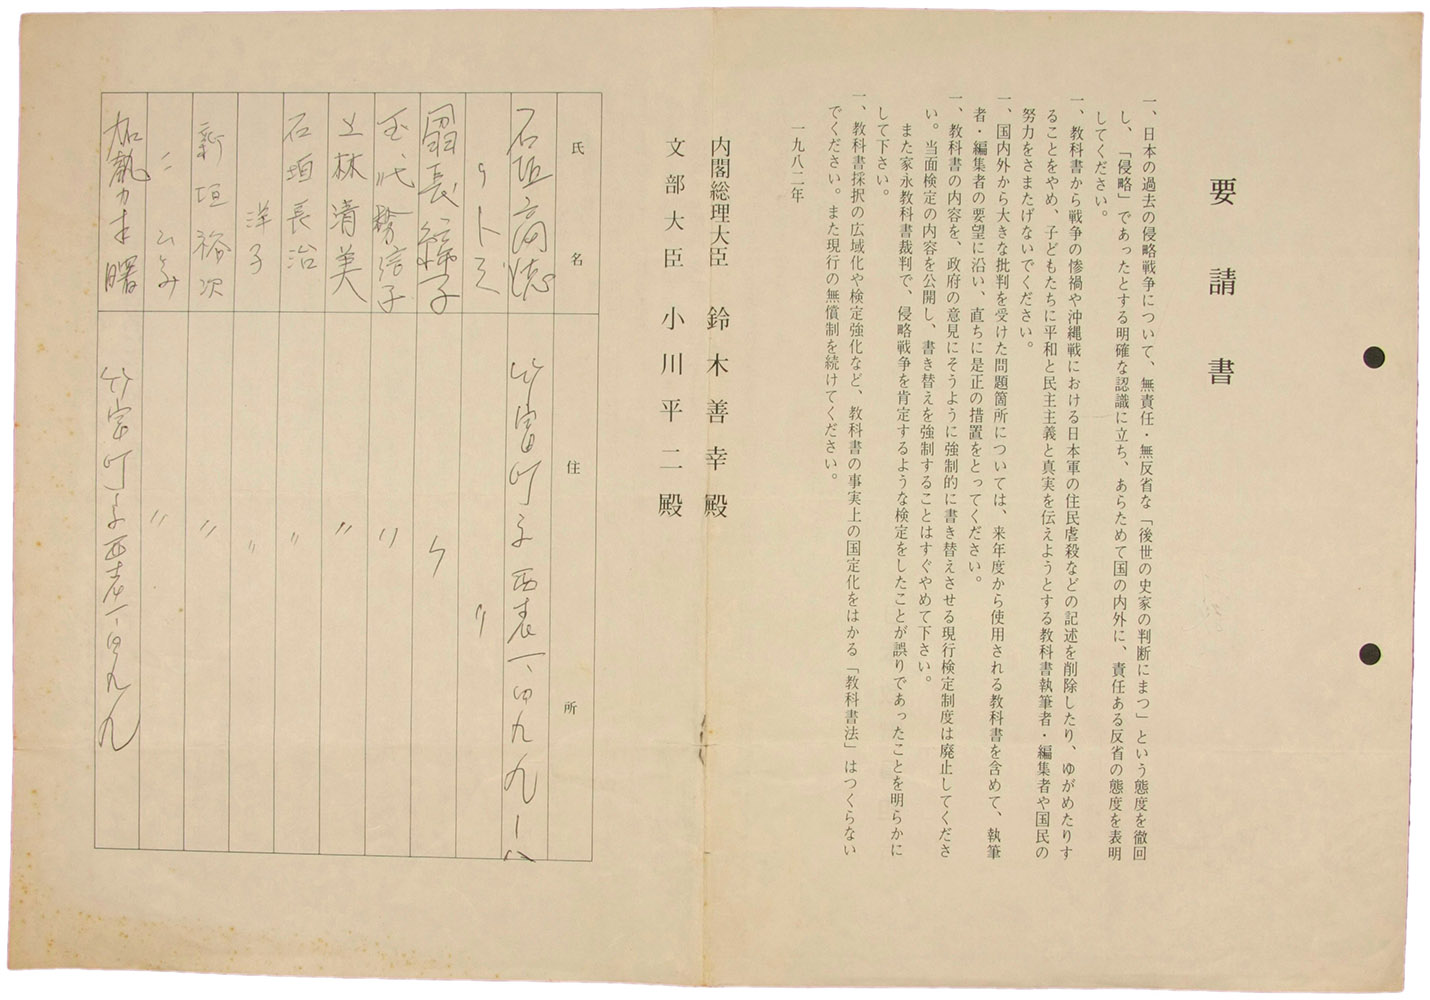 要請書
一、日本の過去の侵略戦争について、無責任・無反省な「後世の史家の判断にまつ」という態度を徹回
し、「侵略」であったとする明確な認識に立ち、あらためて国の内外に、責任ある反省の態度を表明
してください。
一、教科書から戦争の惨禍や沖縄戦における日本軍の住民虐殺などの記述を削除したり、ゆがめたりす
ることをやめ、子どもたちに平和と民主主義と真実を伝えようとする教科書執筆者・編集者や国民の
努力をさまたげないでください。
一、国内外から大きな批判を受けた問題箇所については、来年度から使用される教科書を含めて、執筆
者・編集者の要望に沿い、直ちに是正の措置をとってください。
一、教科書の内容を、政府の意見にそうように強制的に書き替えさせる現行検定制度は廃止してくださ
い。当面検定の内容を公開し、書き替えを強制することはすぐやめて下さい。
また家永教科書裁判で、侵略戦争を肯定するような検定をしたことが誤りであったことを明らかに
して下さい。
一、教科書採択の広域化や検定強化など、教科書の事実上の国定化をはかる「教科書法」はつくらない
でください。また現行の無償制を続けてください。
一九八二年
内閣総理大臣 鈴木善幸殿
文部大臣 小川平二殿
氏名 住所
石垣 竹富町字西表一、四九九ー
〃
長 子 〃
信子 〃
上林清美 〃
石垣長治 〃
洋子 〃
新垣裕次 〃
〃 〃
曙 竹富町字西表一、四九九